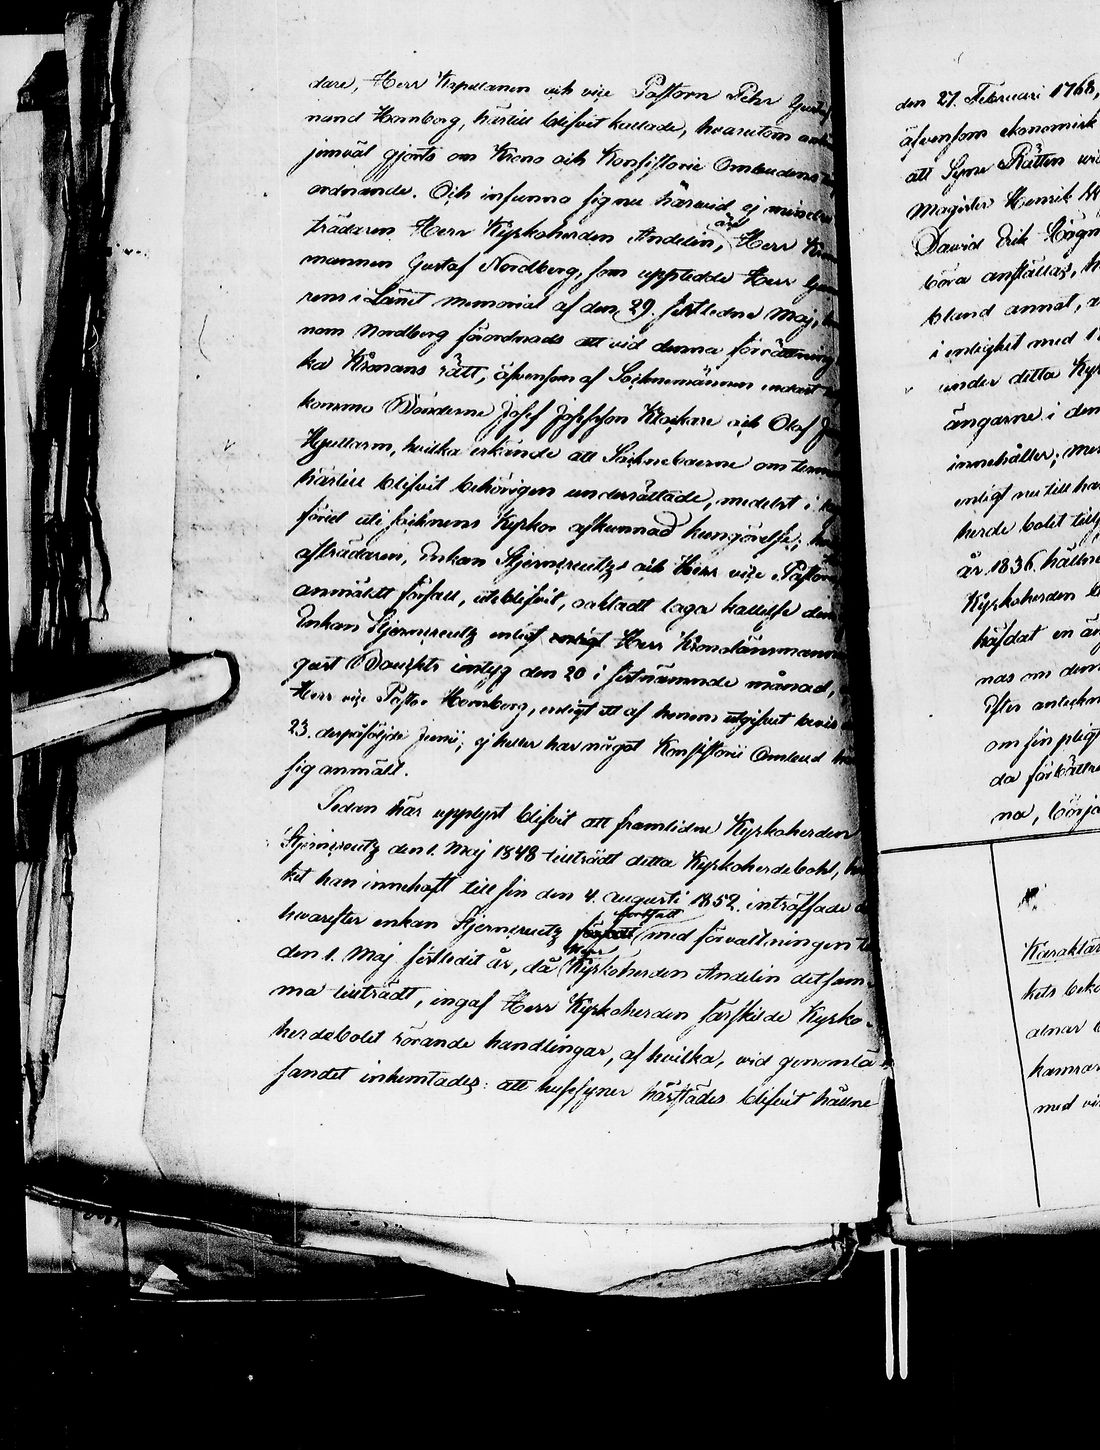 dare, Herr Kapellanen och vice Pastorn Pehr Gustaf
nand Hornborg, härtill blifvit kallade, hvarutom
jemväl gjorts om Krono och Konsistorie Ombudens
ordnande. Och infunno sig nu härvid, ej mindre
trädaren Herr Kyrkoherden Andelin, än Herr
mannen Gustaf Nordberg, som uppledde Herr
rens i Länet memorial af den 29. sistledne Maj,
nom Nordberg förordnads att vid denna förrättning
ka Kronans rätt, äfvensom af Socknemännen endast
kommo Bönderne Josef Josefsson Klockare och Olof
Hjulläm, hvilka erkände att Sockneboerne om
härtill blifvit behörigen underrättade, medelst i
förid uti socknens Kyrkor afkunnad kungörelse;
afträdaren, Enkan Stjerncreutz och Herr vice Pastorn
anmäldt förfall, uteblifvit, oaktadt laga kallelse
Enkan Stjerncreutz enligt enligt Herr Kronolänsmannen
gust Bauchts intyg den 20 i sistnämnde månad,
Herr vice Pastor Hornborg, enligt ett af honom utgifvet bevis
23. derpåföljde Junii; ej heller har något Konsistorii Ombud
sig anmält.
Sedan här upplyst blifvit att framlidne Kyrkoherden
Stjerncreutz den 1. Maj 1848 tillträdt detta Kyrkoherdebohl,
ket han innehaft till sin den 4. augusti 1852 inträffade
hvarefter enkan Stjerncreutz fortfatt med förvaltningen
den 1. Maj förstledit år, då Herr Kyrkoherden Andelin det sam-
ma tillträdt, ingaf Herr Kyrkoherden särskilde Kyrko-
herdebolet rörande handlingar, af hvilka, vid genomlä-
sandet inhemtades: att husesyner härstädes blifvit hållne
den 27. Februari 1768,
äfvensom ekonomisk
att Syne Rätten
Magister Henrik
David Erik
böra anställas,
bland annat,
i enlighet med
under detta
ängarne i den
innehåller;
enligt nu till
herde bolet
år 1836.
Kyrkoherden
häfdat en
nas om den
Efter
om sin pligt
da förbättra
na, börja
Karaktär
kets
alnar
kamrar
med